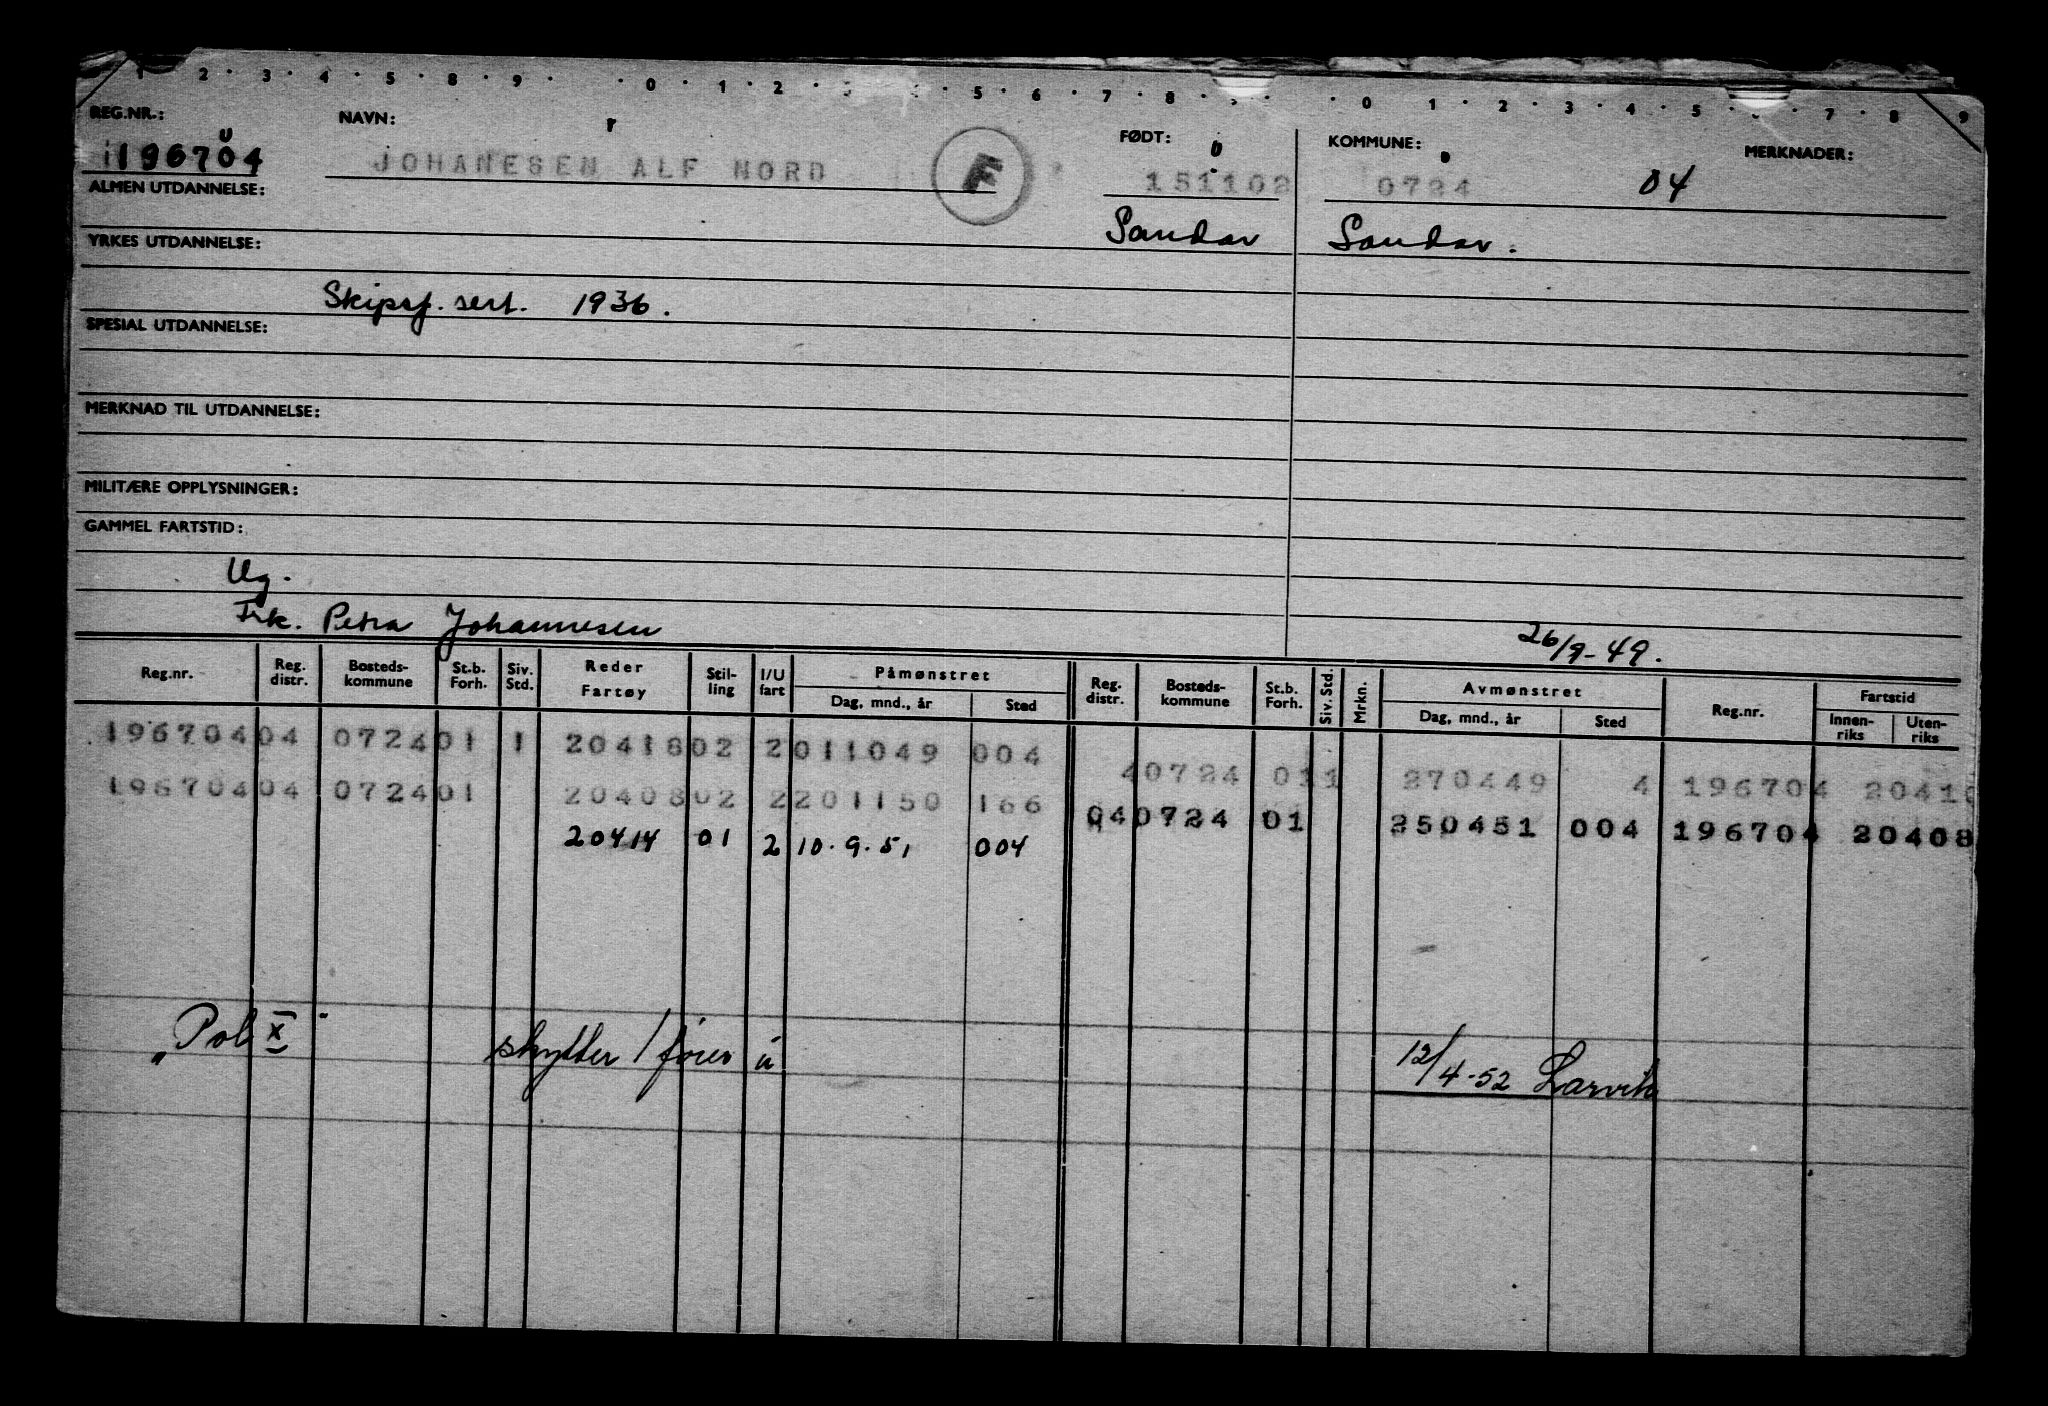 1 · 2 · 3 · 4 · 5 · 8 · 9 · · 0 · 1 · 2 · 5 · 6 · 7 · 8 · · 0 1 · 2 · 3 · 4 · 5 · 7 · 8 · 9
REG.NR.: NAVN: FØDT: KOMMUNE: MERKNADER:
196704 JOHANESEN ALF NORD F 151102 0724 04
ALMEN UTDANNELSE:
Sandar Sandar.
YRKES UTDANNELSE:
Skipsf. sert. 1936.
SPESIAL UTDANNELSE:
MERKNAD TIL UTDANNELSE:
MILITÆRE OPPLYSNINGER:
GAMMEL FARTSTID:
Ug.
Frk. Petra Johannesen 26/9-49.
Reg.nr. Reg. distr. Bosteds-kommune St.b. Forh. Siv. Std. Reder Fartøy Stil-ling I/U fart Påmønstret Dag, mnd., år Sted Reg. distr. Bosteds-kommune St.b. Forh. Siv. Std. Mrkn. Avmønstret Dag, mnd., år Sted Reg.nr. Fartstid Innen-riks Uten-riks
196704 04 0724 01 1 20418 02 2 011049 004 4 0724 01 1 270449 4 196704 2041
196704 04 0724 01 20408 02 2 201150 166 04 0724 01 250451 004 196704 20408
20414 01 2 10.9.51 004
"Pol X" skytter/fører u 12/4-52 Larvik